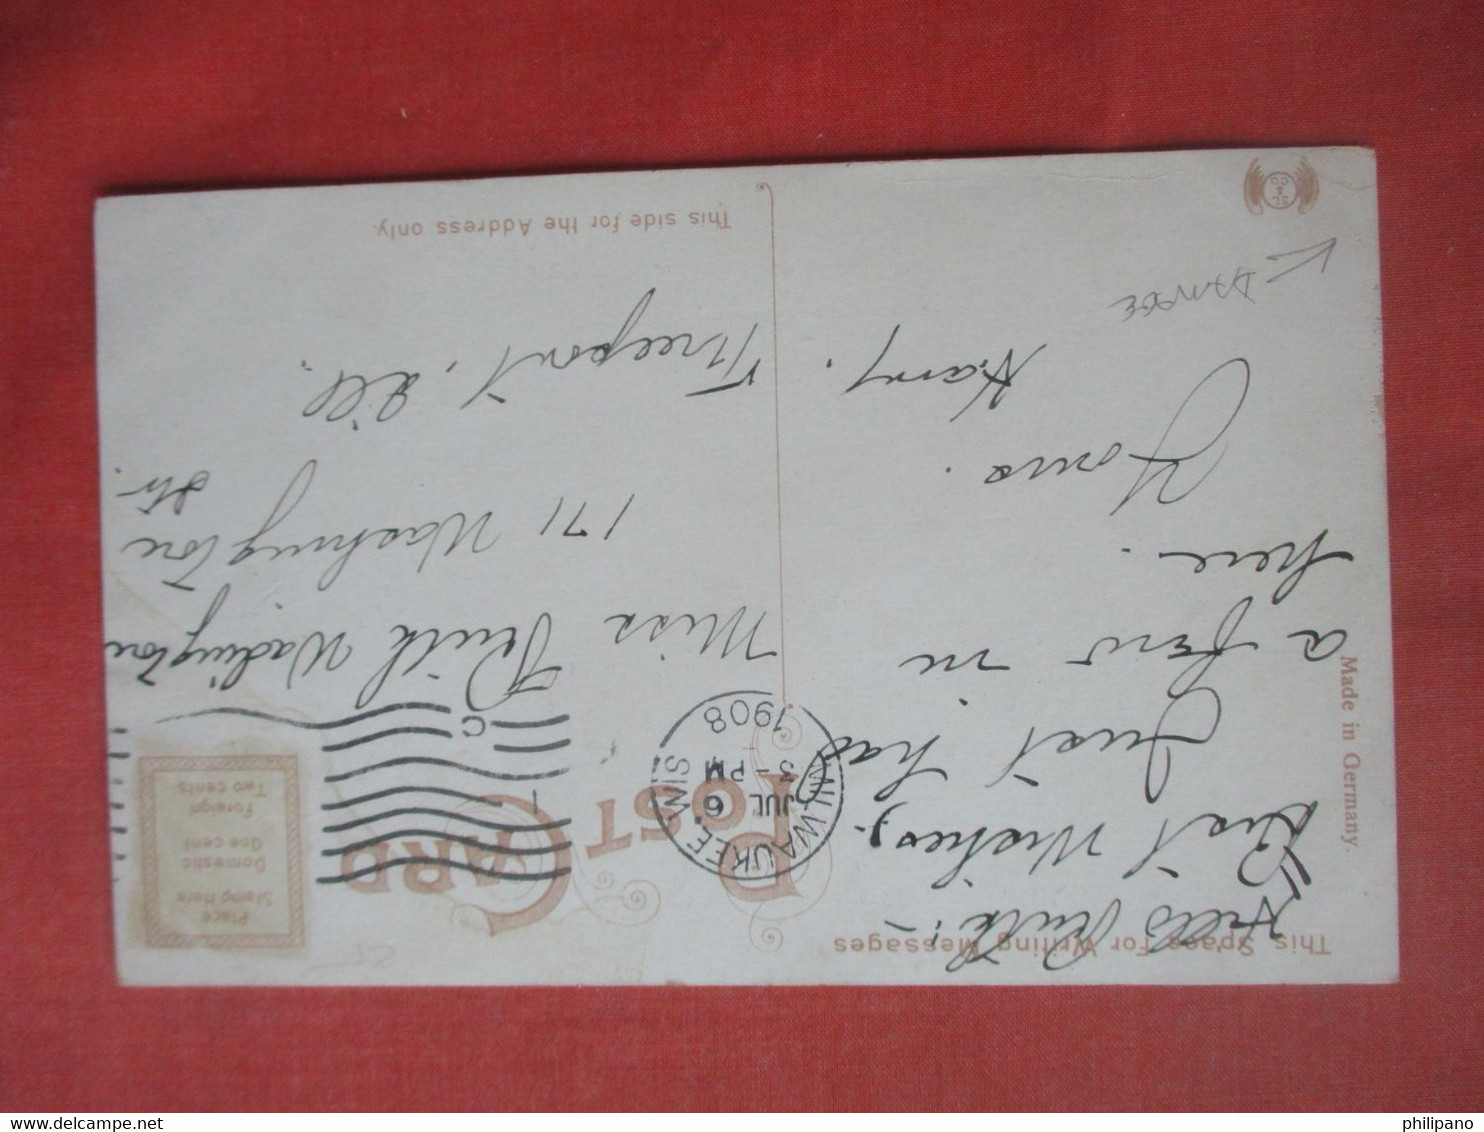 This Space For Writing Messages
Hello Ruth:-
Best Wishes,
Just has
a few in
here.
Yours.
Harry.
Made in Germany.
SL & CO
POST CARD
MILWAUKEE, WIS.
JUL 6
3-PM
1908
1
C
Place
Stamp Here
Domestic
One cent
Foreign
Two cents
Miss Ruth
171 Washington
St.
Freeport, Ill.
This side for the Address only.
philipano
delcampe.net